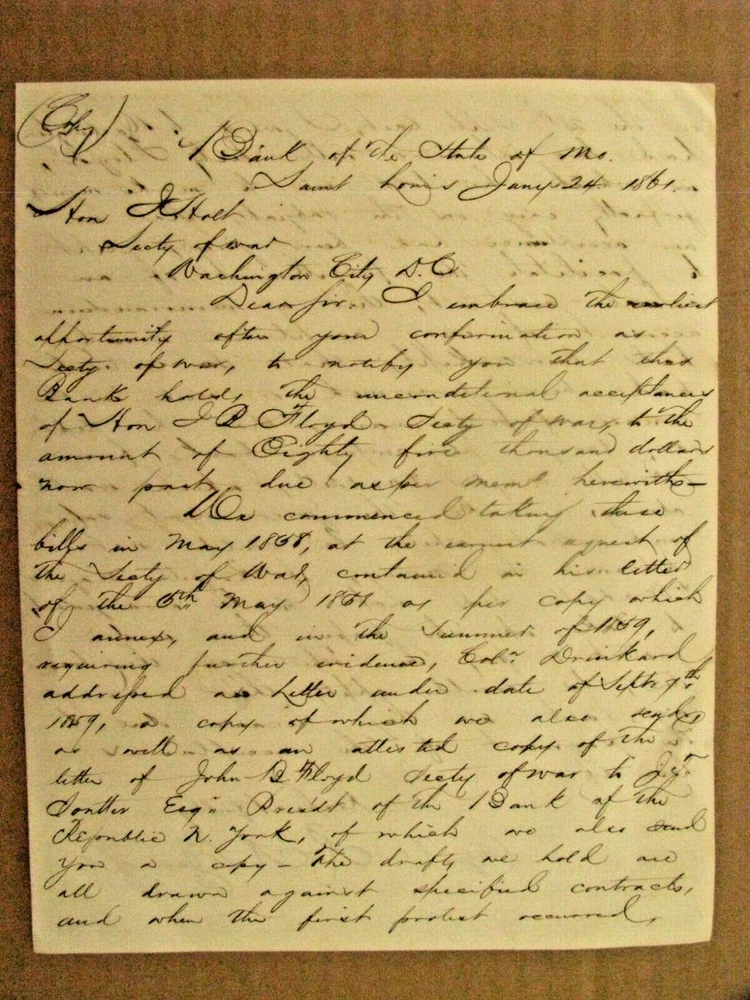 (Copy)
Bank of the State of Mo.
Saint Louis Jany 24 1861.
Hon J Holt
Secty of war
Washington City D.C
Dear Sir. I embrace the earliest
opportunity after your confirmation as
Secty of war, to notify you that this
Bank holds, the unconditional acceptances
of Hon J B Floyd Secty of war, to the
amount of Eighty five thousand dollars
now past due as per memd herewith—
We commenced taking these
bills in May 1858, at the earnest request of
the Secty of War, contained in his letter
of the 6th May 1858 as per copy which
I annex, and in the summer of 1859,
requiring further evidence, Col. Drinkard
addressed a letter under date of Septr 7th
1859, a copy of which we also
as well as an attested copy of the
letter of John B Floyd Secty of war to
Soutter Esqr Presdt of the Bank of the
Republic N. York, of which we also send
you a copy – The drafts we hold are
all drawn against specified contracts,
and when the first protest occurred,